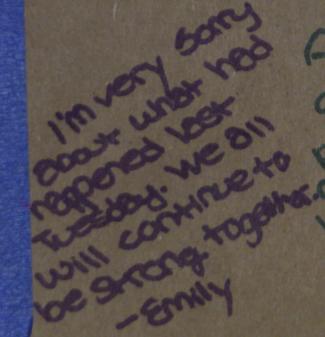 I'm very sorry
about what had
happened last
Tuesday. We all
will continue to
be strong together.
-Emily